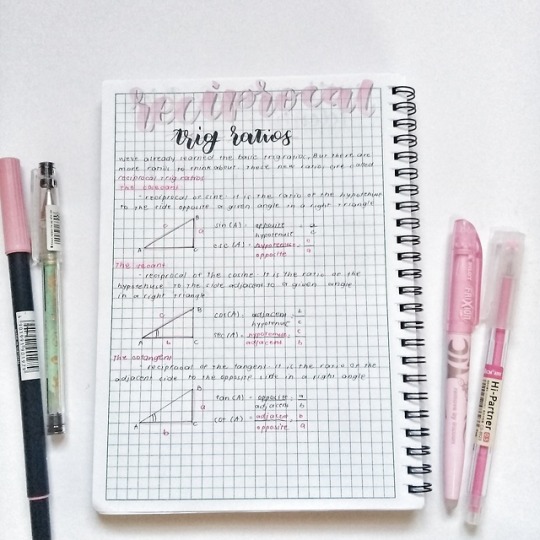 reciprocal
trig ratios
We've already learned the basic trig ratios, But there are
more ratios to think about. These new ratios are called
reciprocal trig ratios.
The cosecant
- reciprocal of sine. it is the ratio of the hypotenuse
to the side opposite a given angle in a right triangle
B
c a
A C
sin(A) = opposite = a
hypotenuse c
csc(A) = hypotenuse = c
opposite a
The secant
- reciprocal of the cosine. It is the ratio of the
hypotenuse to the side adjacent to a given angle
in a right triangle
B
c
A b C
cos(A) = adjacent = b
hypotenuse c
sec(A) = hypotenuse = c
adjacent b
The cotangent
- reciprocal of the tangent. It is the ratio of the
adjacent side to the opposite side in a right angle
B
a
A b C
tan(A) = opposite = a
adjacent b
cot(A) = adjacent = b
opposite a
Hi-Partner